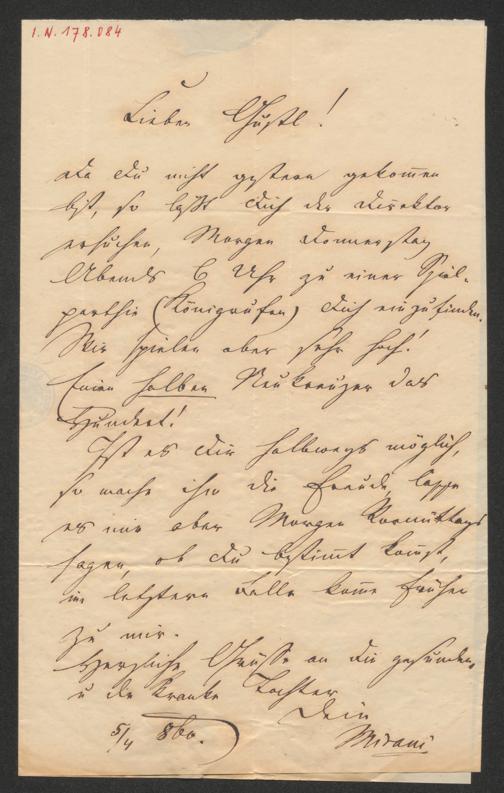 I.N. 178.084
Lieber Gustl!
Da Du nicht gestern gekommen
bist, so läßt Dich der Direktor
ersuchen, Morgen Donnerstag
Abends 6 Uhr zu einer Spiel-
parthie (Königrufen) Dich einzufinden.
Wir spielen aber sehr hoch!
Einen halben Neukreuzer das
Hundert!
Ist es Dir halbwegs möglich,
so mache ihm die Freude, lasse
es mir aber Morgen Vormittags
sagen, ob Du bestimmt komst,
im letztern Falle kome früher
zu mir.
Herzliche Grüsse an die gesunden
u die kranke Tochter
Dein
5/4 860. Mirani